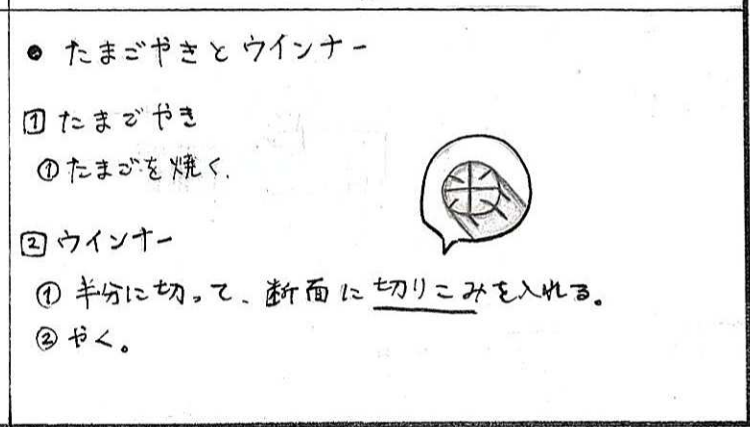 ● たまごやきとウインナー
1 たまごやき
① たまごを焼く.
2 ウインナー
① 半分に切って、断面に切りこみを入れる。
② やく。